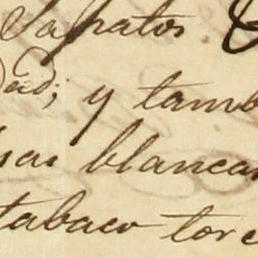 Sapatos
dad; y tamb
sas blancas
tabaco torc